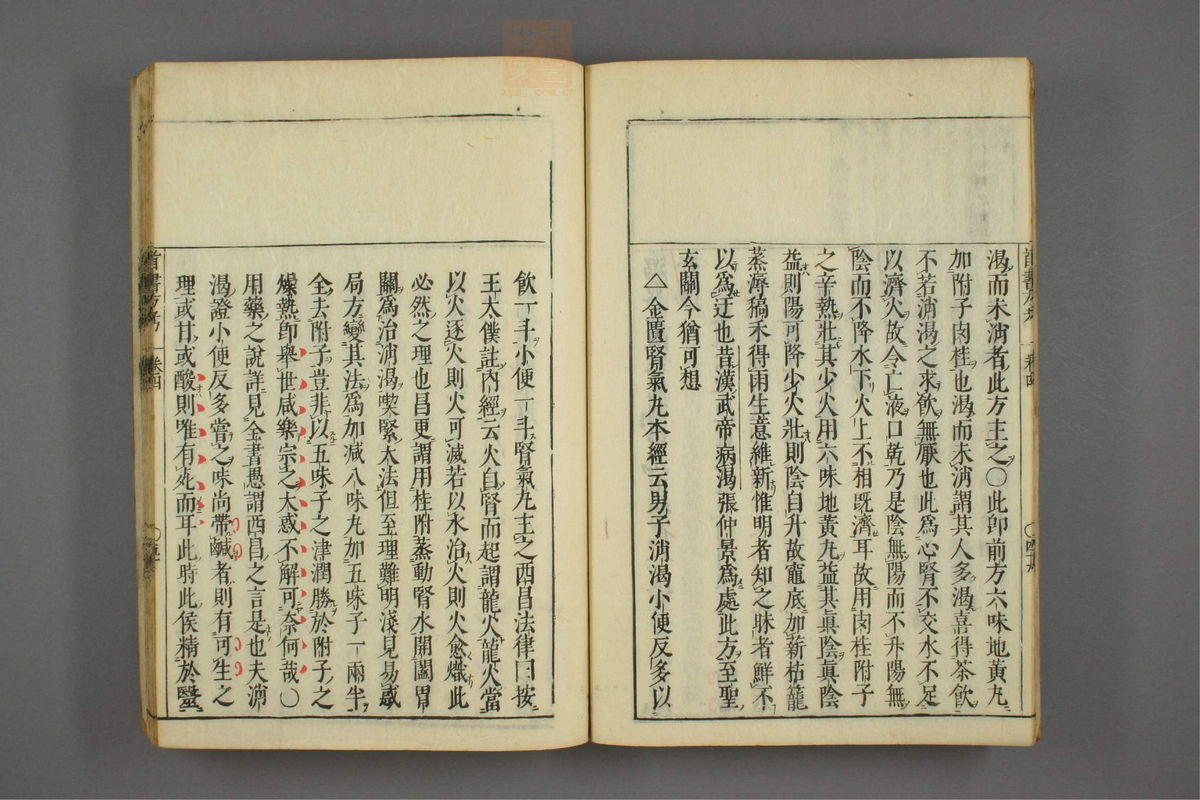 渴而未消者此方主之〇此即前方六味地黃丸
加附子肉桂也渴而未消謂其人多渴喜得茶飲
不若消渴之求飲無厭也此為心腎不交水不足
以濟火故令亡液口乾乃是陰無陽而不升陽無
陰而不降水下火上不相既濟耳故用肉桂附子
之辛熱壯其少火用六味地黃丸益其真陰真陰
益則陽可降少火壯則陰自升故竈底加薪枯籠
蒸溽稿禾得雨生意維新惟明者知之昧者鮮不
以為迂也昔漢武帝病渴張仲景為處此方至聖
玄關今猶可想
△金匱腎氣丸本經云男子消渴小便反多以
飲一斗小便一斗腎氣丸主之西昌法律曰按
王太僕註內經云火自腎而起謂龍火龍火當
以火逐火則火可滅若以水治火則火愈熾此
必然之理也昌更謂用桂附蒸動腎水開闔胃
關為治消渴喫緊大法但至理難明淺見易惑
局方變其法為加減八味丸加五味子一兩半
全去附子豈非以五味子之津潤勝於附子之
燥熱即舉世咸樂宗之大惑不解可奈何哉〇
用藥之說詳見全書愚謂西昌之言是也夫消
渴證小便反多嘗之味尚帶鹹者則有可生之
理或甘或酸則唯有死而耳此時此候精於醫
首書方考
卷四
卷四